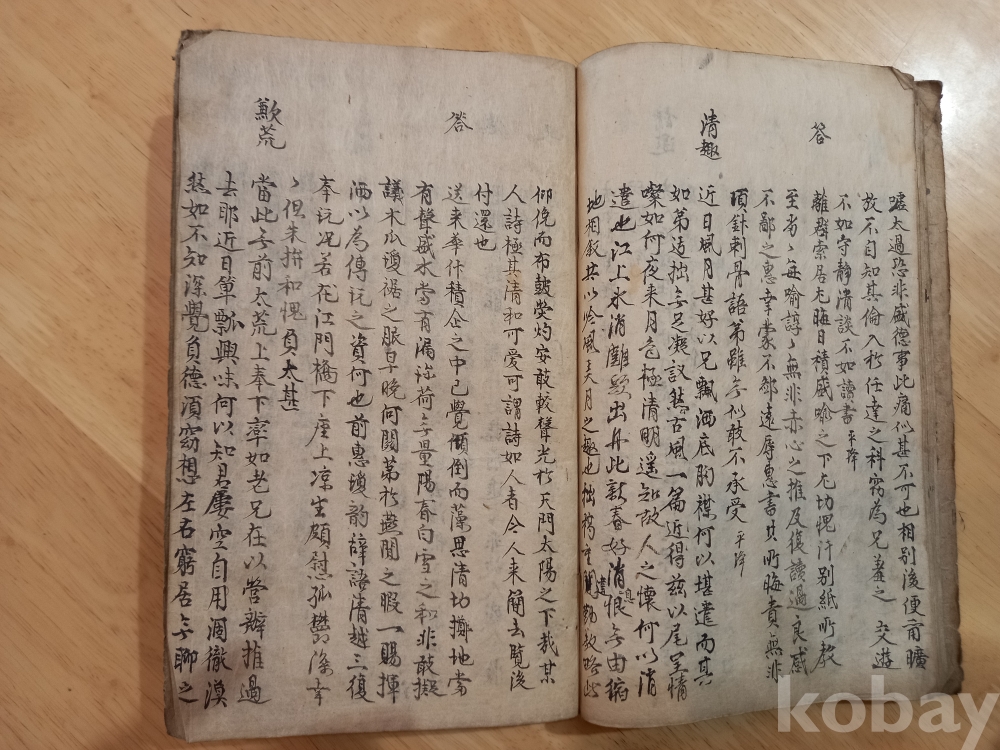 噓太過恐非盛德事此痛似甚不可也相別後便面曠
放不自知其倫入於任達之科竊為兄羞之 交遊
不如守靜清談不如讀書 平降
答
離群索居尤晦日積盛喻之下尤切愧汗別紙所教
至当〻每喻諄〻無非赤心之推及復讀過良感
不鄙之惠幸蒙不鄙遠辱惠書其所晦責無非
頂針刺骨語弟雖無似敢不承受 平降
清趣
近日風月甚好以兄飄洒底胸襟何以堪遣而其
如弟迃拙無足凝議然古風一篇近得玆以尾呈情
懷如何夜來月色極清明遥知故人之懷何以消
遣也江上氷消難
出舟此新春好消
恨無由縮
地相敍共以吟風美月之趣也
仰俛而布皷熒灼安敢較聲光於天門太陽之下哉某
人詩極其清和可愛可謂詩如人者今人来簡去覧後
付還也
答
送来華什積企之中已覺傾倒而藻思清切擲地當
有聲盛水當有漏
荷無量陽春白雪之和非敢擬
議木瓜瓊琚之賑早晚何関第於燕閒之暇一賜揮
洒以為傳玩之資何也前惠瓊韵辞語清越三復
奉玩况若在江門橋下座上凉生頗慰孤欝深幸
〻但未拚和愧負太甚
歉荒
當此無前太荒上奉下率如老兄在以營辦推過
去耶近日簞瓢興味何以知君屢空自用凋徹漠
然如不知深覺負德湏窃想左右窮居無聊之
kobay